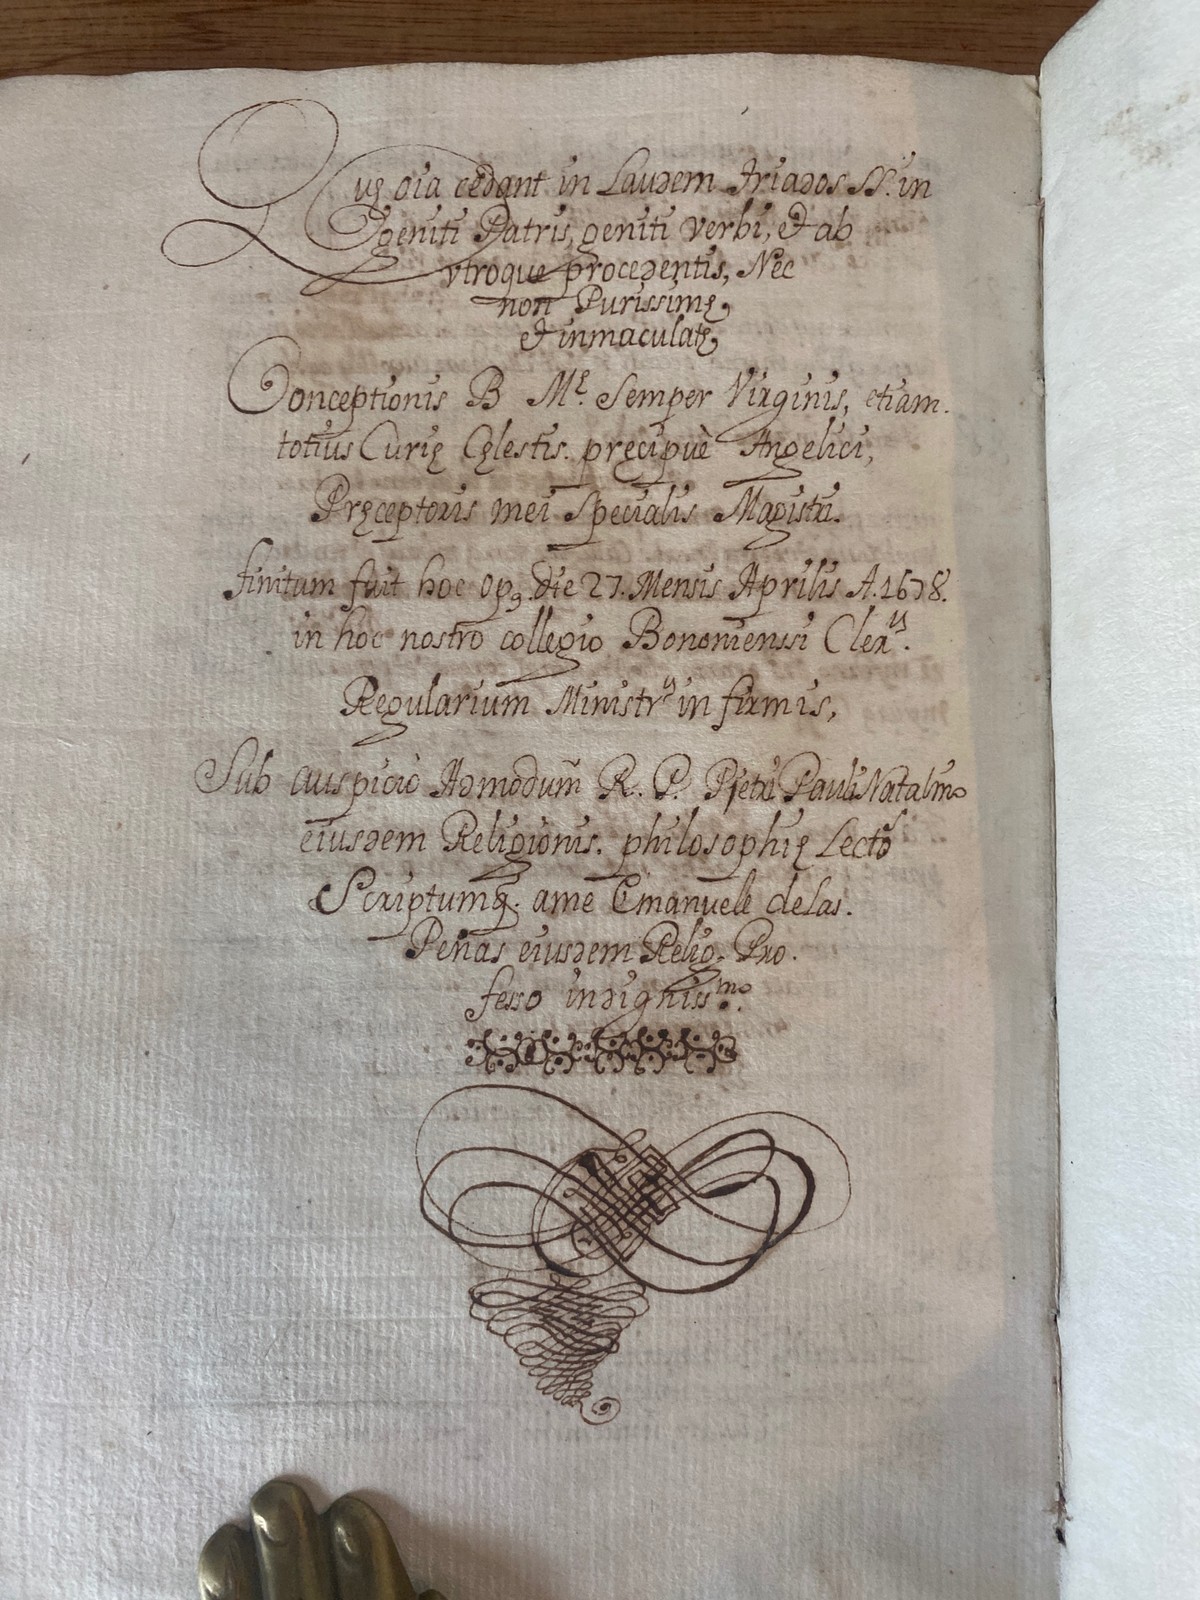 Quę oĩa cędant in Laudem Triados SS. in
geniti Patris, geniti verbi, et ab
vtroque procedentis, Nec
non Purissimę,
et inmaculatę,
Conceptionis B Mę. Semper Virginis, etiam.
totius Curię Cęlestis. pręcipuè Angelici,
Pręceptoris mei specialis Magistri.
finitum fuit hoc opꝰ die 27. Mensis Aprilis A. 1678.
in hoc nostro collegio Bononienssi Clerꝝ.
Regularium Ministrꝝ in firmis,
Sub auspicio Admodum̃ R. P. Petri Pauli
eiusdem Religionis. philosophię Lectõ
Scriptumq. ame Emanuele delas.
Peñas eiusdem Relig. Pro.
fesso indigniss.mo